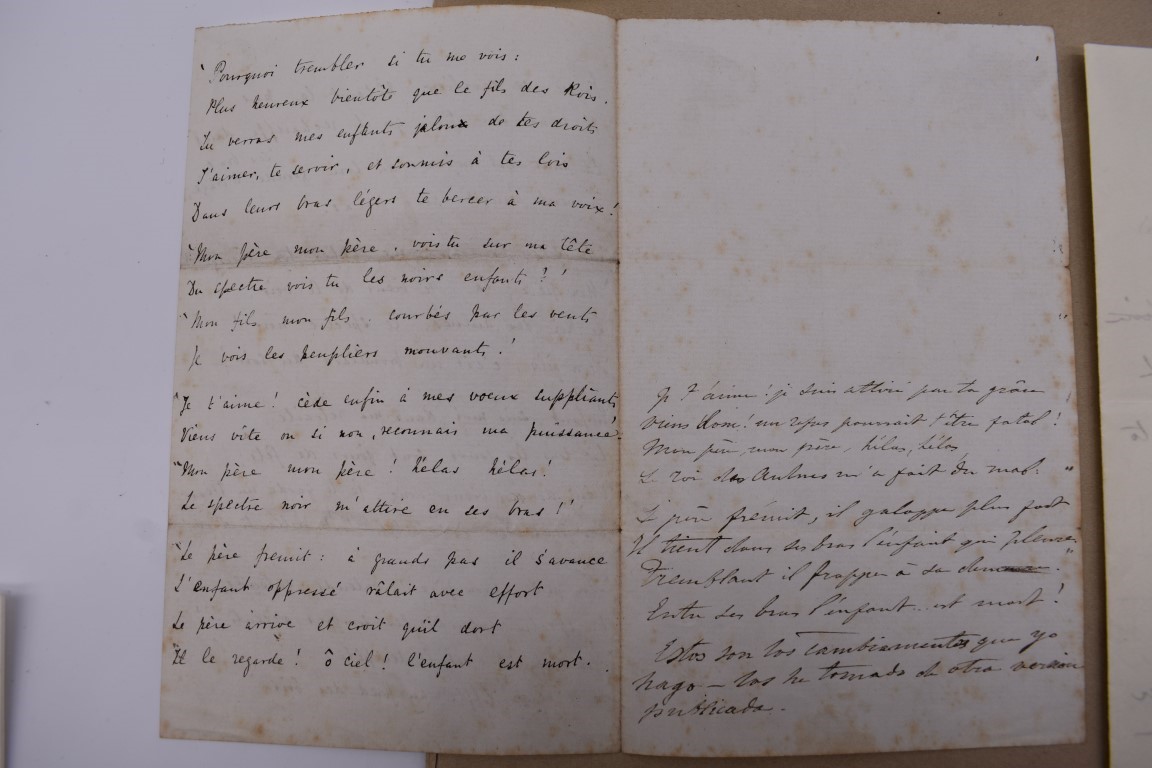 "Pourquoi trembler si tu me vois :
Plus heureux bientôts que le fils des Rois.
Tu verras mes enfants jaloux de tes droits
T'aimer, te servir, et soumis à tes lois
Dans leurs bras légers te bercer à ma voix !
"Mon père mon père, vois tu sur ma tête
Du spectre vois tu les noirs enfants ? !
"Mon fils mon fils. courbés par les vents
Je vois les peupliers mouvants !
"Je t'aime ! cède enfin à mes voeux suppliants
Viens vite ou si non, reconnais ma puissance
"Mon père mon père ! hélas hélas !
Le spectre noir m'attire en ses bras ! !
"Le père fremit : à grands pas il s'avance
L'enfant oppressé râlait avec effort
Le père arrive et croit qu'il dort
Il le regarde ! ô ciel ! l'enfant est mort.
Je t'aime ! je suis attiré par ta grâce
Viens donc ! un refus pourrait t'être fatal !
Mon père, mon père, hélas, hélas
Le roi des Aulnes m'a fait du mal. "
Le père frémit, il galoppe plus fort
Il tient dans ses bras l'enfant qui pleure
Tremblant il frappe à sa demeure.
Entre ses bras l'enfant.. est mort !
Estos son los cambiamentos que yo
hago – los he tomado de otra version
publicada.